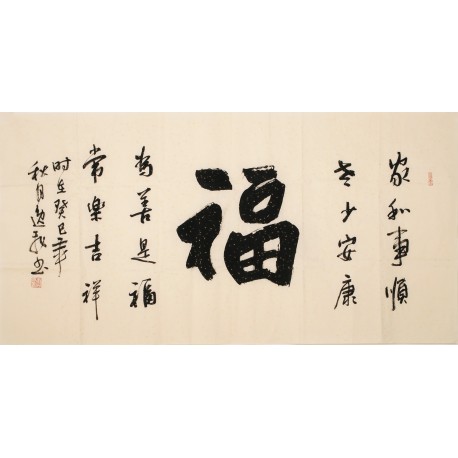 家和事順
老少安康
福
為善是福
常樂吉祥
时在癸巳年
秋月逸书